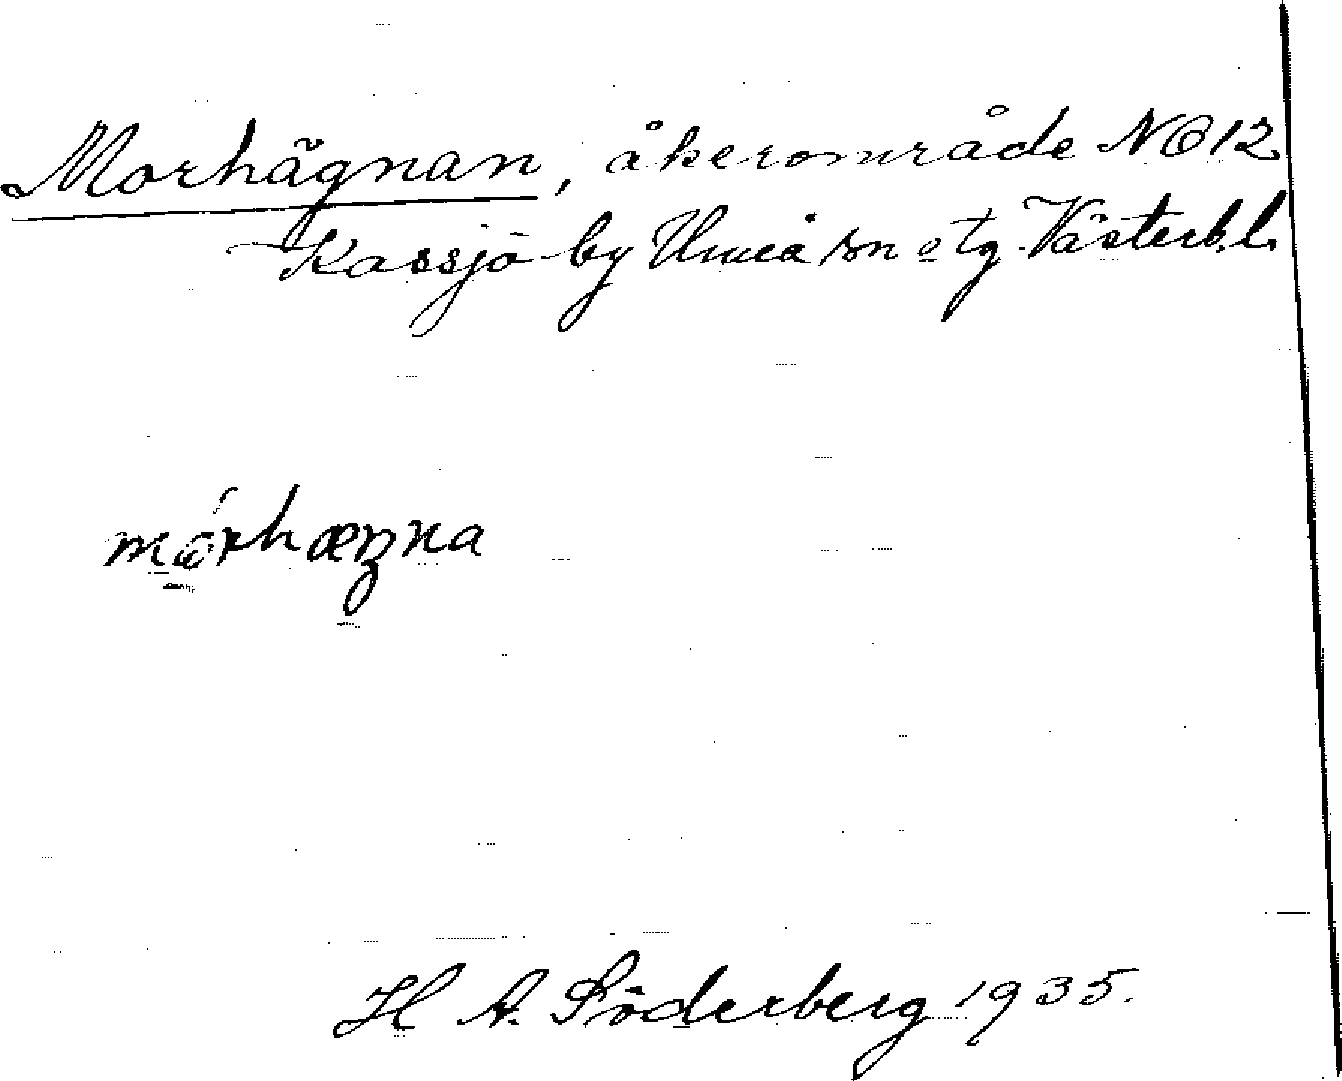 Morhägnan, åkerområde NO 12
Kassjö by Umeå sn o tg. Västerb. l.
mórhæŋna
H A. Söderberg 1935.